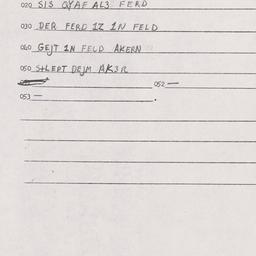 020 SIS QYAF AL3 FERD
030 DER FERD IZ IN FELD
040 GEJT IN FELD AKERN
050 SHLEPT DEJM AK3R
052 —
053 —